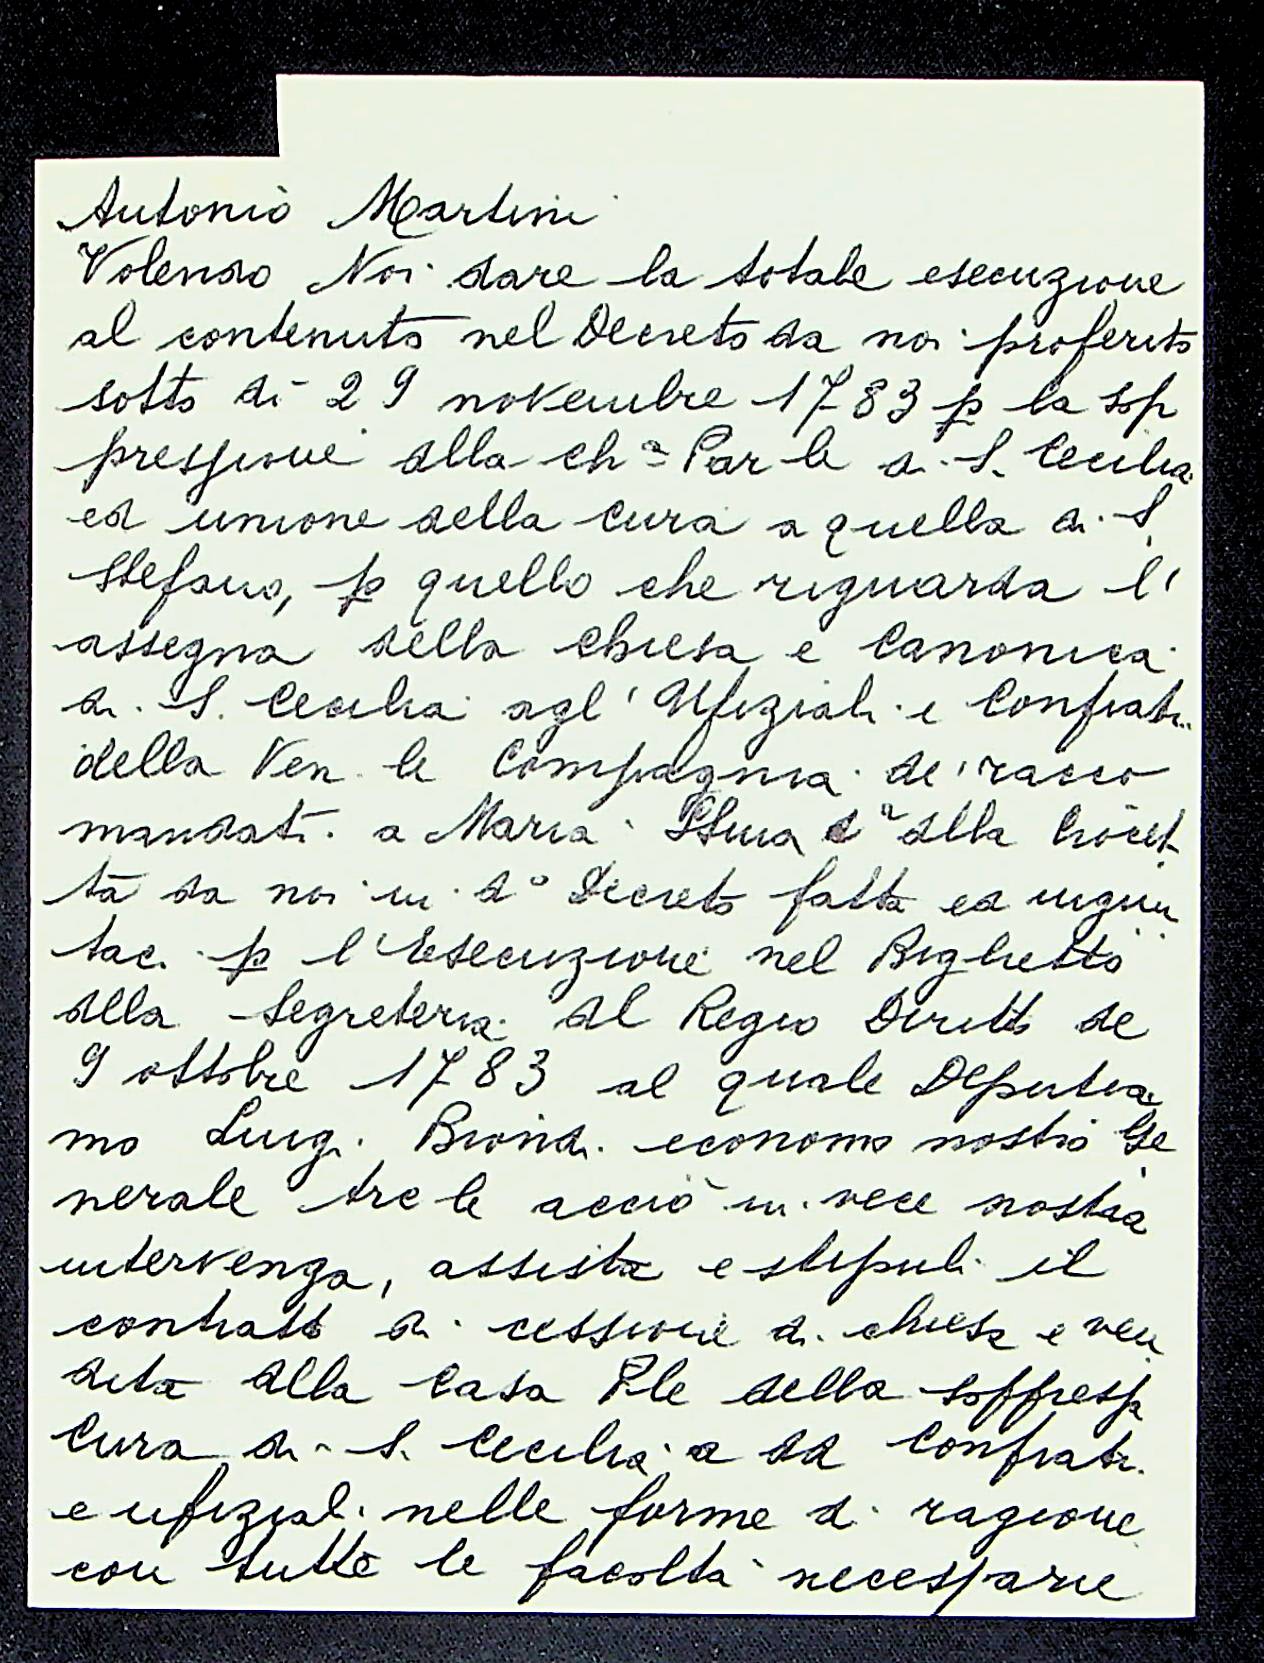 Antonio Martini
Volendo Noi dare la totale esecuzione
al contenuto nel Decreto da noi proferito
sotto dì 29 novembre 1783 p la sop
pressione della chª Par le di S. Cecilia
ed unione della cura a quella di S.
Stefano, p quello che riguarda l'
assegna della chiesa e Canonica
di S. Cecilia agl' Ufiziali e Confrati
della Ven le Compagnia de' racco
mandati a Maria SSma dª della Crocet
ta da noi in d° Decreto fatta ed ingiun
tac. p l'Esecuzione nel Biglietto
della Segreteria del Regio Diritto de
9 ottobre 1783 al quale Deputia
mo Luigi Biondi economo nostro Ge
nerale Arc le acciò in vece nostra
intervenga, assista e stipuli il
contratto di cessione di chiesa e ven
dita della Casa Ple della soppressa
Cura di S. Cecilia a dd Confrati
e ufiziali nelle forme di ragione
con tutte le facoltà necessarie